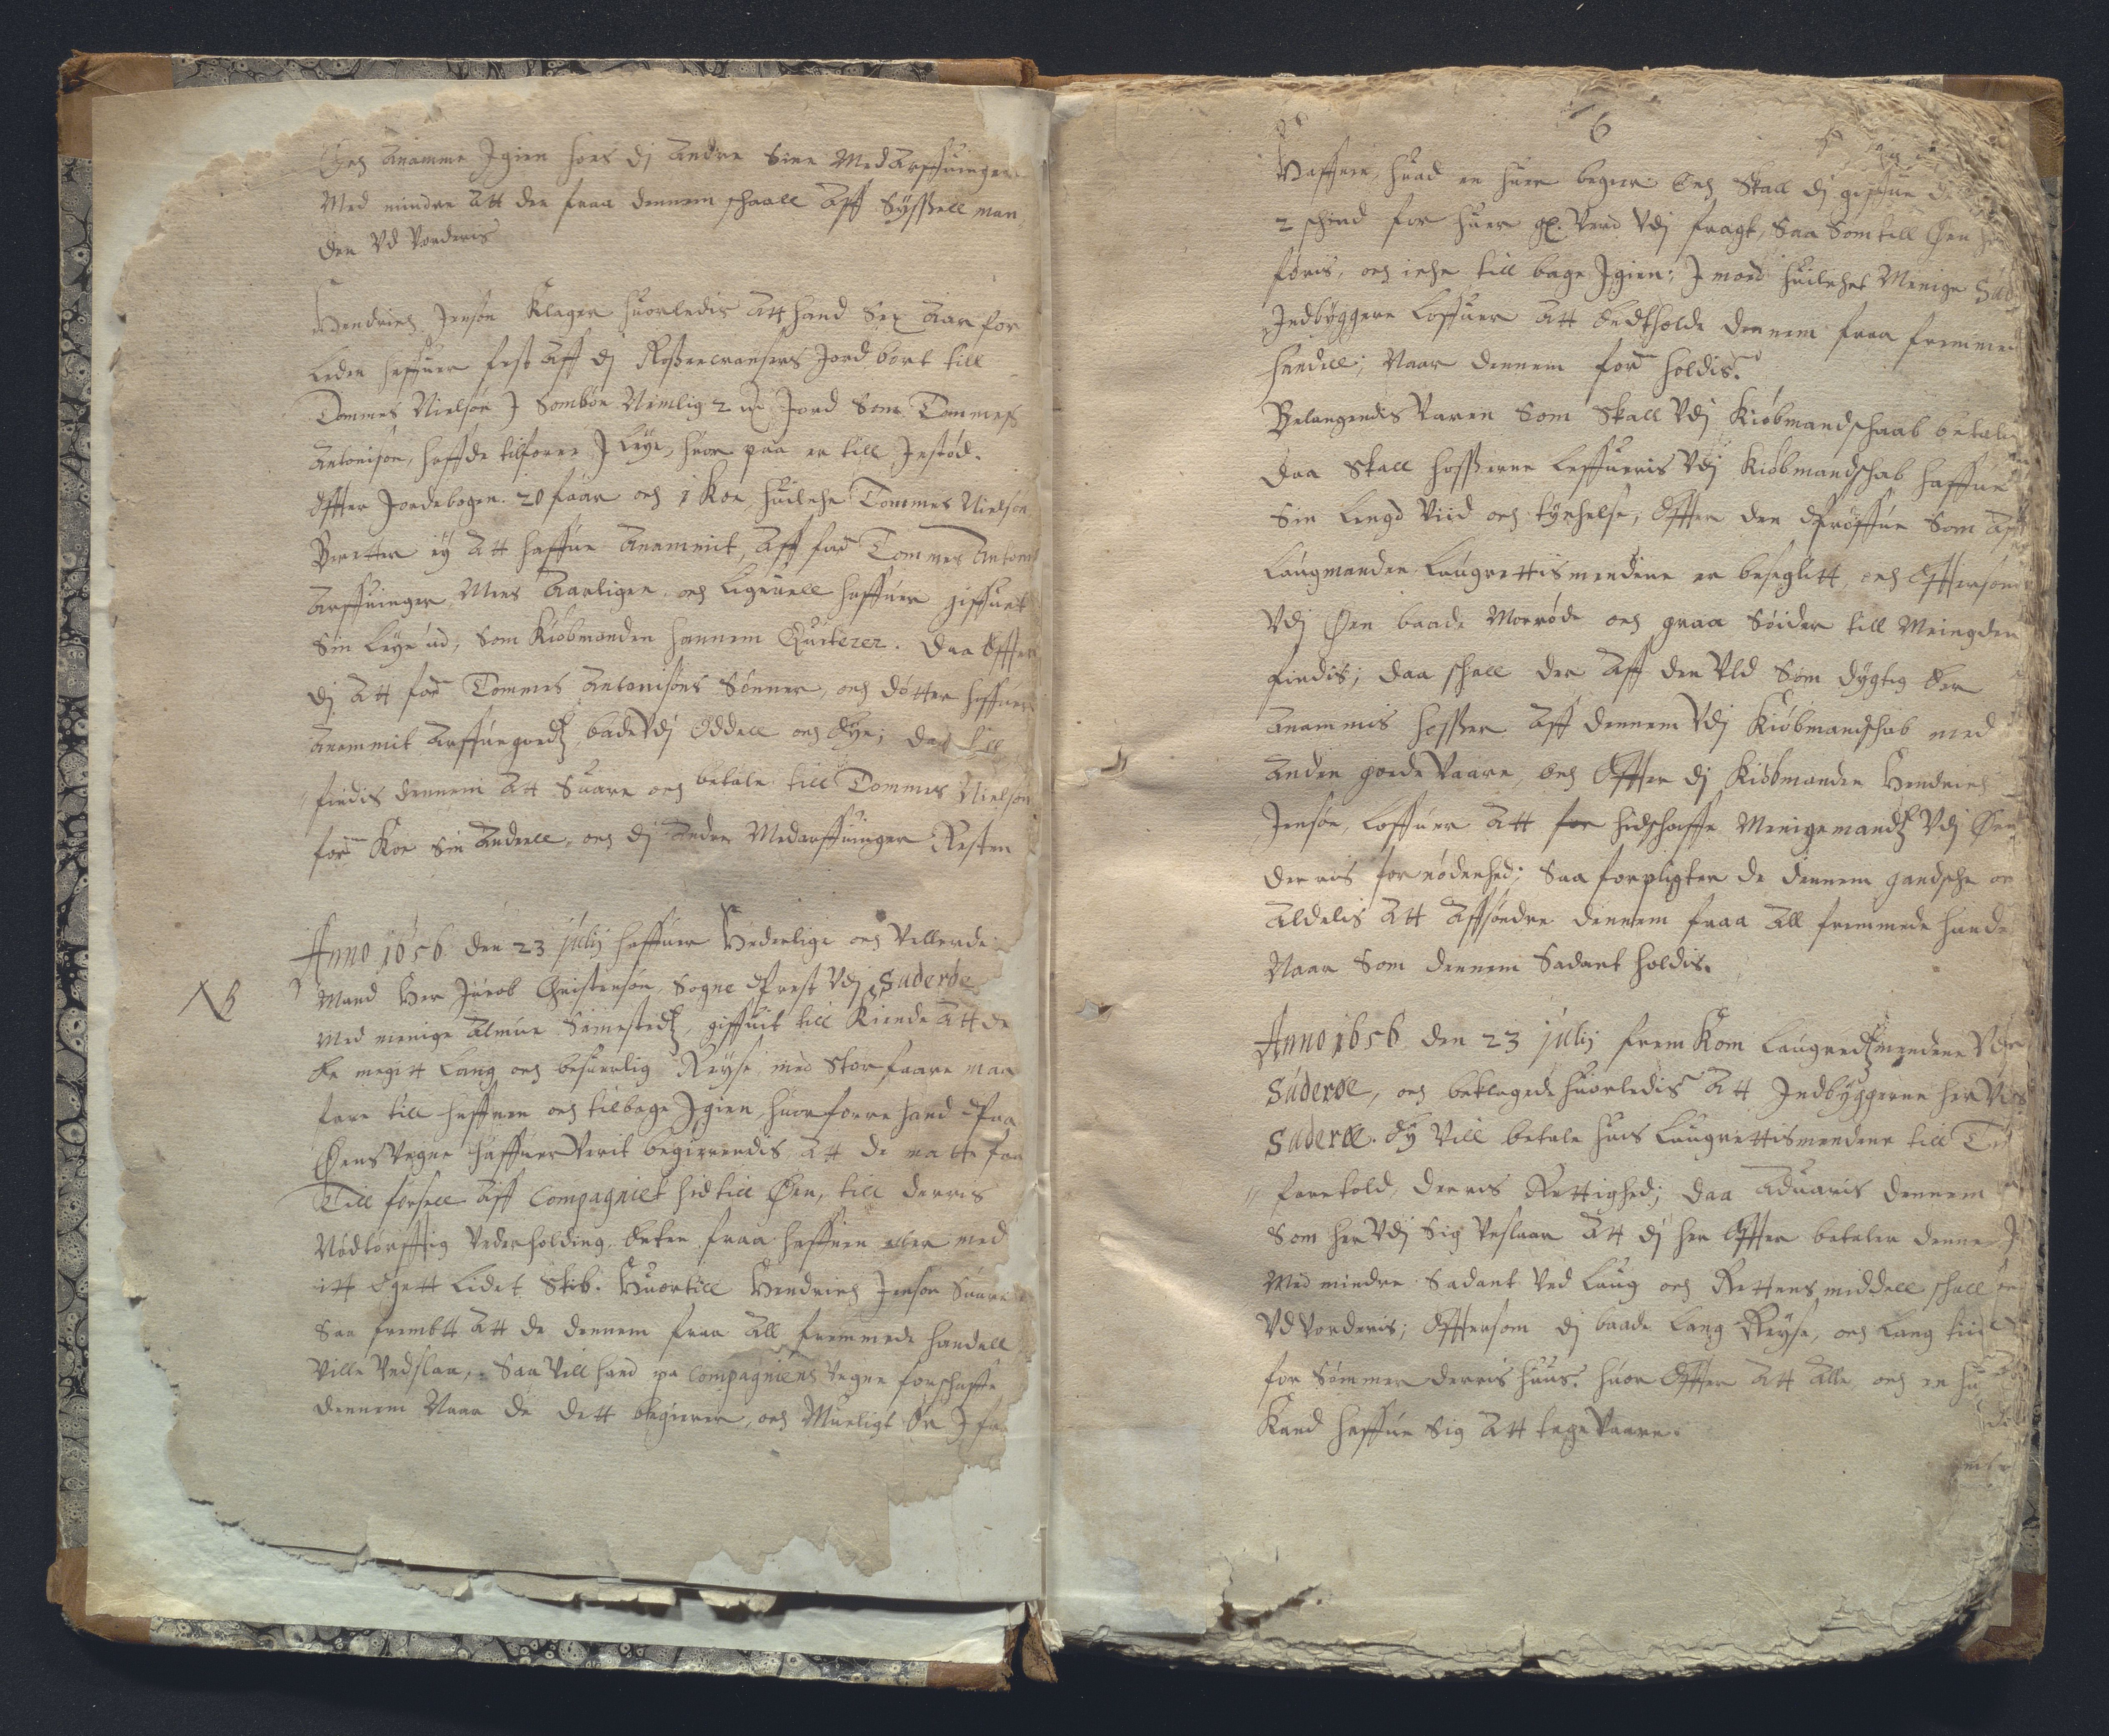 Och Anamme Igien hoes dj Andre Sine Medarffuinger
Med mindre Att der faaa dennem schaall Aff Sysßell man,
den Vd Vorderis
Hendrich Jensøn Klager huorledis Att hand Sex Aar for
Leden haffuer fest Aff dj Roßencransers Jord bort till
Tommes Nielsøn J Sombøe Nemlig 2 Jord Som Tommes
Antonisøn, haffde tilforne J Leye, huor paa er till Jestød.
Effter Jordebogen. 20 faar och 1 Koe, huilche Tommes Nielsøn
Beretter ey Att haffue Anammit, Aff for: Tommes Antoni
Arffuinger, Mens Aarligen och Ligeuell haffuer giffuet
Sin Leye ud, Som Kiøbmanden hannem Quiterer. Daa Effter
dj Att for: Tommes Antonisøns Sønner, och døtter haffuer
Anammit Arffuegodtz, bade Vdj Oddell och Eye; daa till
findis dennem Att Suare och betale till Tommes Nielsøn
for: Koe Sin Andeell, och dj Andre Medarffuinger Resten
NB
Anno 1656 den 23 julij haffuer Hederlige och Vellerde
Mand Her Jacob Christensøn, Sogne Prest Vdj Suderøe
Med menige Almue Samestedtz, giffuit till Kiende Att de
be megitt Lang och besuerlig Reyse med Stor faare maa
fare till haffnen och tilbage Igien, huorforre hand Paa
Øens Vegne haffuer Verit begierendis Att de matte faa
Till forsell Aff Compagniet hid till Øen, till derris
Nødtørfftig Vederholding. Enten fraa haffnen eller med
itt Eget Lidet Skib. Huortill Hendrich Jensøn Suare
Saa frembtt Att de dennem fraa All fremmede handell
Ville Vndslaa, Saa Vill hand pa Compagniens Vegne forschaffe
dennem Naar de dett begierer, och Mueligt Er J fa
6
Haffnen, huad en huer begier Och Skall dj giffue d
2 schind for huer gl. Verd Vdj fragt, Saa Som till Øen
føris, och iche till bage Igien; J mod huilchet Menige Sud
Indbyggere Loffuer Att Endtholde dennem fraa fremmed
handell; Naar dennem for: holdis.
Belangendis Varen Som Skall Vdj Kiøbmandschaab betale
daa Skall hosßerne Leffueris Vdj Kiøbmandschab haffue
Sin Lengd Viid och tychelse, Effter den Prøffue Som Aff
Laugmanden Laugrettismendene er beseglitt, och Efftersom
Vdj Øen baade Morrøde och graa Søider till Meingden
findis; daa schall der Aff den Vld Som dygtig Er
Anammis hosßer Aff dennem Vdj Kiøbmandschab med
Anden goede Vaare, Och Effter dj Kiøbmanden Hendrich
Jensøn, Loffuer Att for hidschaffe Menigemandtz Vdj Øen
derris fornødenhed; Saa forpligter de dennem gandsche oc
Aldelis Att Affsøndre dennem fraa All fremmede hande
Naar Som dennem Sadant holdis.
Anno 1656 den 23 julij frem Kom Laugredtzmendene Vdj
Suderøe, och beklagede huorledis Att Indbyggerne her Vdj
Suderøe. Ey Vill betale huis Laugrettismendene till
forrtold, derris Rettighed; daa Aduaris dennem
Som her Vdj Sig Vnslaar Att dj her Effter betaler denne
Med mindre Sadant Ved Laug och Rettens middell schall
Vd Vorderis; Effersom dj baade Lang Reyse, och Lang tiid
for Sømmer derris huus. huor Effter Att Alle och en hu
Kand haffue Sig Att tage Vaare.